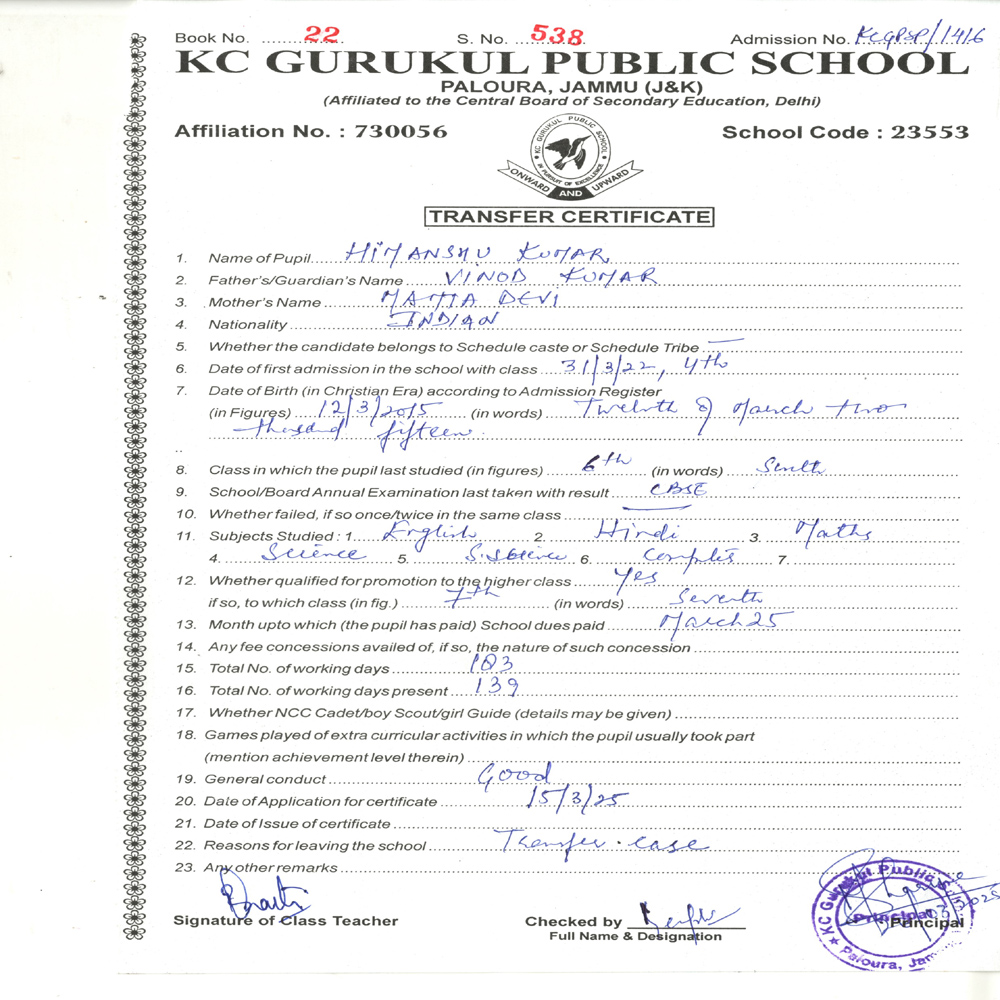 Book No. 22 S. No. 538 Admission No. KCGPSP/1416
KC GURUKUL PUBLIC SCHOOL
PALOURA, JAMMU (J&K)
(Affiliated to the Central Board of Secondary Education, Delhi)
Affiliation No. : 730056 School Code : 23553
KC GURUKUL PUBLIC SCHOOL
IN PURSUIT OF EXCELLENCE
ONWARD AND UPWARD
TRANSFER CERTIFICATE
1. Name of Pupil HIMANSHU KUMAR
2. Father's/Guardian's Name VINOD KUMAR
3. Mother's Name MAMTA DEVI
4. Nationality INDIAN
5. Whether the candidate belongs to Schedule caste or Schedule Tribe —
6. Date of first admission in the school with class 31/3/22, 4th
7. Date of Birth (in Christian Era) according to Admission Register
(in Figures) 12/3/2015 (in words) Twelvth of March two
thousand fifteen.
8. Class in which the pupil last studied (in figures) 6th (in words) Sixth
9. School/Board Annual Examination last taken with result CBSE
10. Whether failed, if so once/twice in the same class —
11. Subjects Studied : 1. English 2. Hindi 3. Maths
4. Science 5. S.Science 6. Computer 7.
12. Whether qualified for promotion to the higher class Yes
if so, to which class (in fig.) 7th (in words) Seventh
13. Month upto which (the pupil has paid) School dues paid March 25
14. Any fee concessions availed of, if so, the nature of such concession
15. Total No. of working days 183
16. Total No. of working days present 139
17. Whether NCC Cadet/boy Scout/girl Guide (details may be given)
18. Games played of extra curricular activities in which the pupil usually took part
(mention achievement level therein)
19. General conduct Good
20. Date of Application for certificate 15/3/25
21. Date of Issue of certificate
22. Reasons for leaving the school Transfer case
23. Any other remarks
Signature of Class Teacher Checked by Principal
Full Name & Designation
KC Gurukul Public
Principal
Paloura, Jam